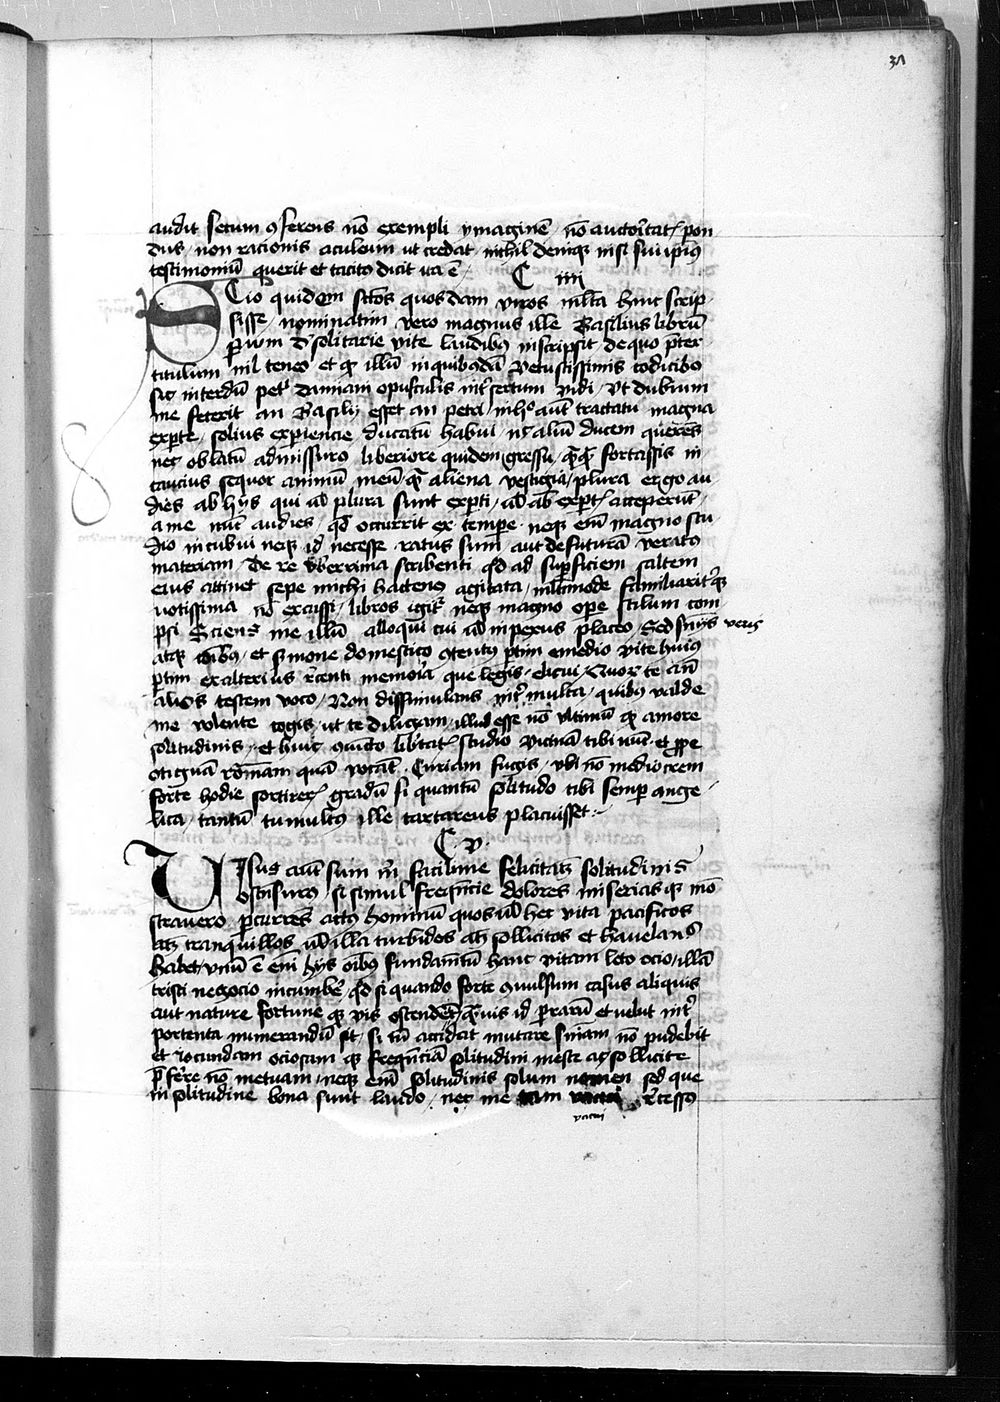 31
audit secum ꝯferens nō exempli ymaginē nō auctoritatꝭ pon
dus · non racionis aculeum ut credat · nichil deniqꝫ nisi sui ipius
testimoniū querit et tacito dicit ita ē
C iiii
SCio quidem sctōs quosdam viros mlta hinc scrip
sisse · nominatim vero magnus ille Basilius librū
ꝑuum d' solitarie vite laudibꝫ inscripsit de quo preter
titulum nil teneo et qꝫ illū in quibusdā vetustissimis codicibꝫ
sic interdū petri damiani opusculis intersertum vidi vt dubium
me fecerit an Basilij esset an petri in hoc aut tractatu magna
ex parte solius experiencie ducatū habui nec aliū ducem querens
nec oblatū admissurus liberiore quidem gressu qꝫqꝫ fortassis in
caucius sequor animū meū qꝫ aliena vestigia plura ergo au
dies ab hijs qui uł plura sunt experti uł ab expertis acceperūt
a me nūc audies qd occurrit ex tempe neqꝫ eni magno stu
dio incubui neqꝫ id necesse ratus sum aut defuturā veritꝫ
materiam de re vberrima scribenti qd ad supficiem saltem
eius attinet sepe michi hactenus agitata mltimode familiaritqꝫ
notissima nō excussi libros igitur neqꝫ magno ope stilum com
psi Sciens me illū alloqui cui uł inpexus placeo Sed sniis veris
atqꝫ cōibꝫ et sermone domestico ꝯtentus partim e medio vite huius
partim ex alterius recenti memoria que legis elicui Quorum te an
alios testem voco Non dissimulans inter multa quibus valde
me volente cogis ut te diligam illud esse nō vltimū qꝫ amore
solitudinis et huic ꝯiuncto libertatꝭ studio vicinā tibi nunc et ꝓpe
contiguā romanam quā vocāt Curiam fugis vbi nō mediocrem
forte hodie sortireris gradū si quantū solitudo tibi semper ange
lica tantū tumultus ille tartareus placuisset
C v
VIsus autē sum michi facilime felicitatē solitudinis
ostensurus si simul frequencie dolores miseriasqꝫ mō
stravero percurrens actus hominū quos uł hec vita pacificos
atqꝫ tranquillos uł illa turbidos atqꝫ sollicitos et hauelans
habet vnū ē eni hijs oibꝫ fundamētū hanc vitam leto ocio illā
tristi negocio incumbere qd si quando forte ꝯuulsum casus aliquis
aut nature fortune qꝫ vis ostenderet quis id perrarū et velut inter
portenta numerandū sit si tn accidat mutare sniam nō pudebit
et iocundam ociosam qꝫ frequenciā solitudini meste ac sollicite
p̄ferre nō metuam neqꝫ eni solitudinis solum nomen sed que
in solitudine bona sunt laudo nec me tam vacui recessus
vacui